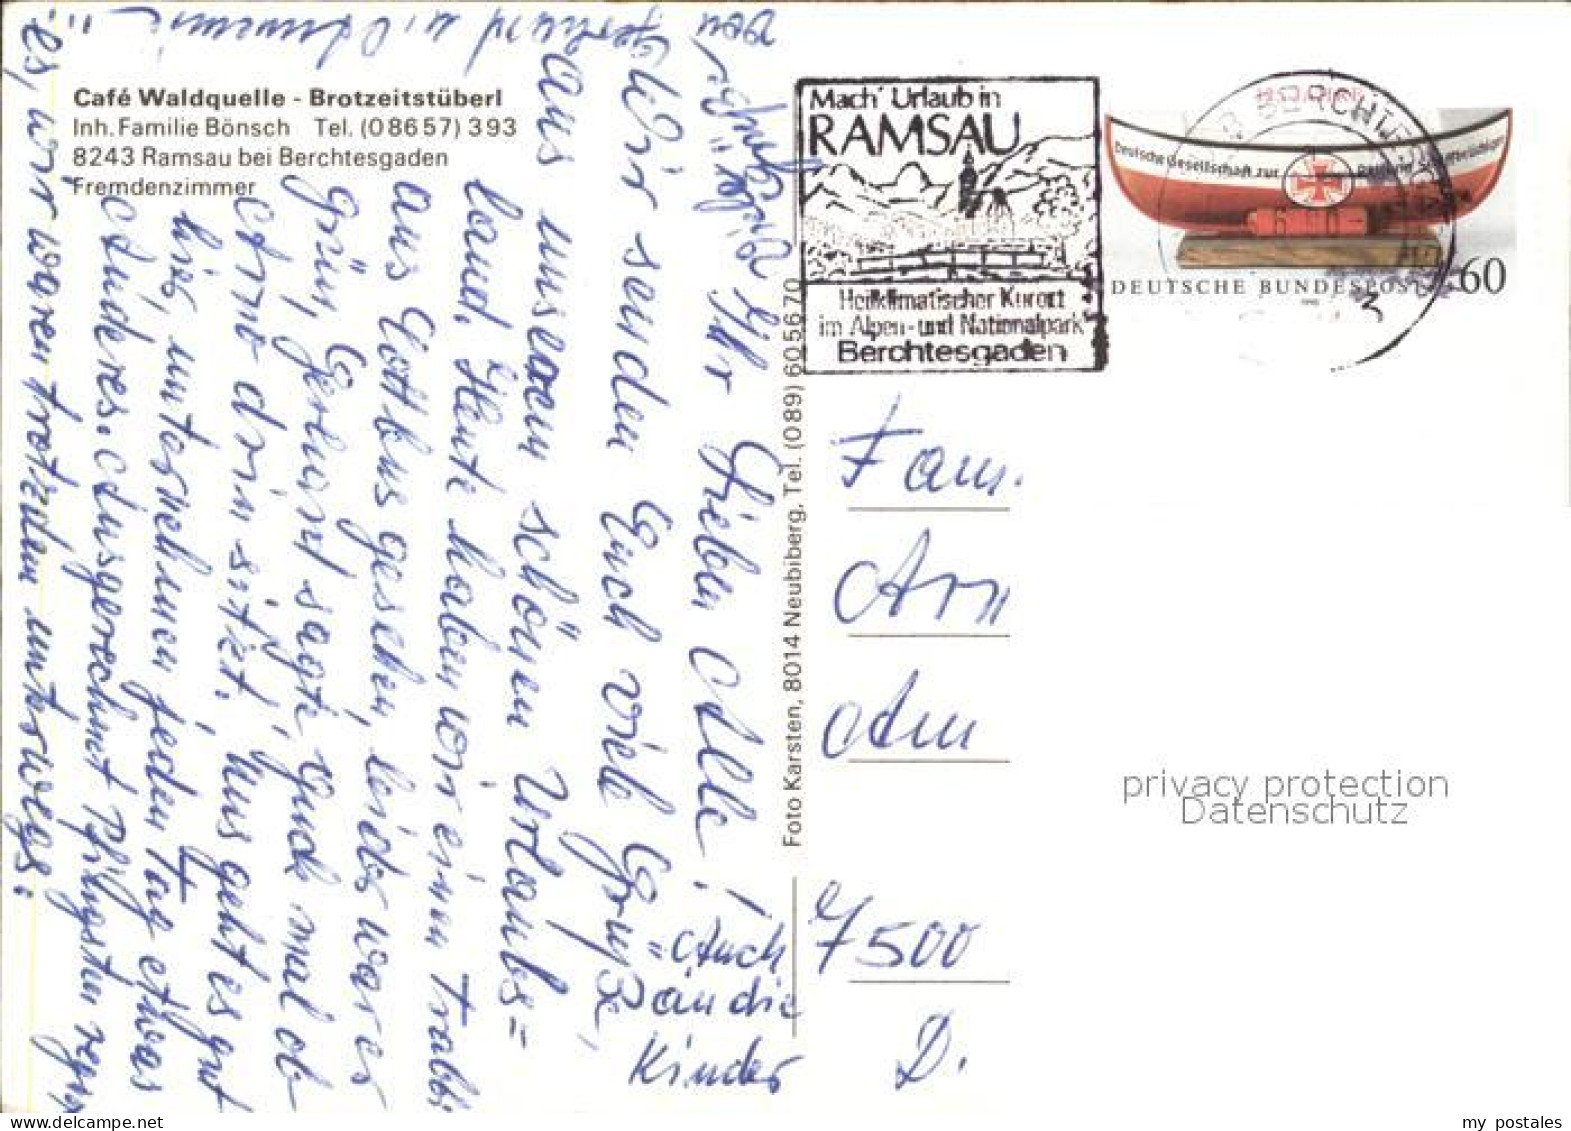 Café Waldquelle - Brotzeitstüberl
Inh. Familie Bönsch Tel. (08657) 393
8243 Ramsau bei Berchtesgaden
Fremdenzimmer
Ihr Lieben Alle!
Wir senden Euch viele Grüße,
aus unserem schönen Urlaubs=
land. Heute haben wir einen Trabbi
aus Cottbus gesehen, leider war er
Grün, Gerhard sagte, guck mal ob
Arno drin sitzt. Uns geht es gut
hier, unternehmen jeden Tag etwas
Anderes. Ausgerechnet Pfingsten regn
es, wir waren trotzdem unterwegs.
Auch
an die
Kinder
Foto Karsten, 8014 Neubiberg, Tel. (089) 605670
Mach' Urlaub in
RAMSAU
Heilklimatischer Kurort
im Alpen- und Nationalpark
Berchtesgaden
Deutsche Gesellschaft zur Rettung Schiffbrüchiger
DEUTSCHE BUNDESPOST 60
Fam.
Arn
Am
7500
D.
privacy protection
Datenschutz
www.delcampe.net
my_postales